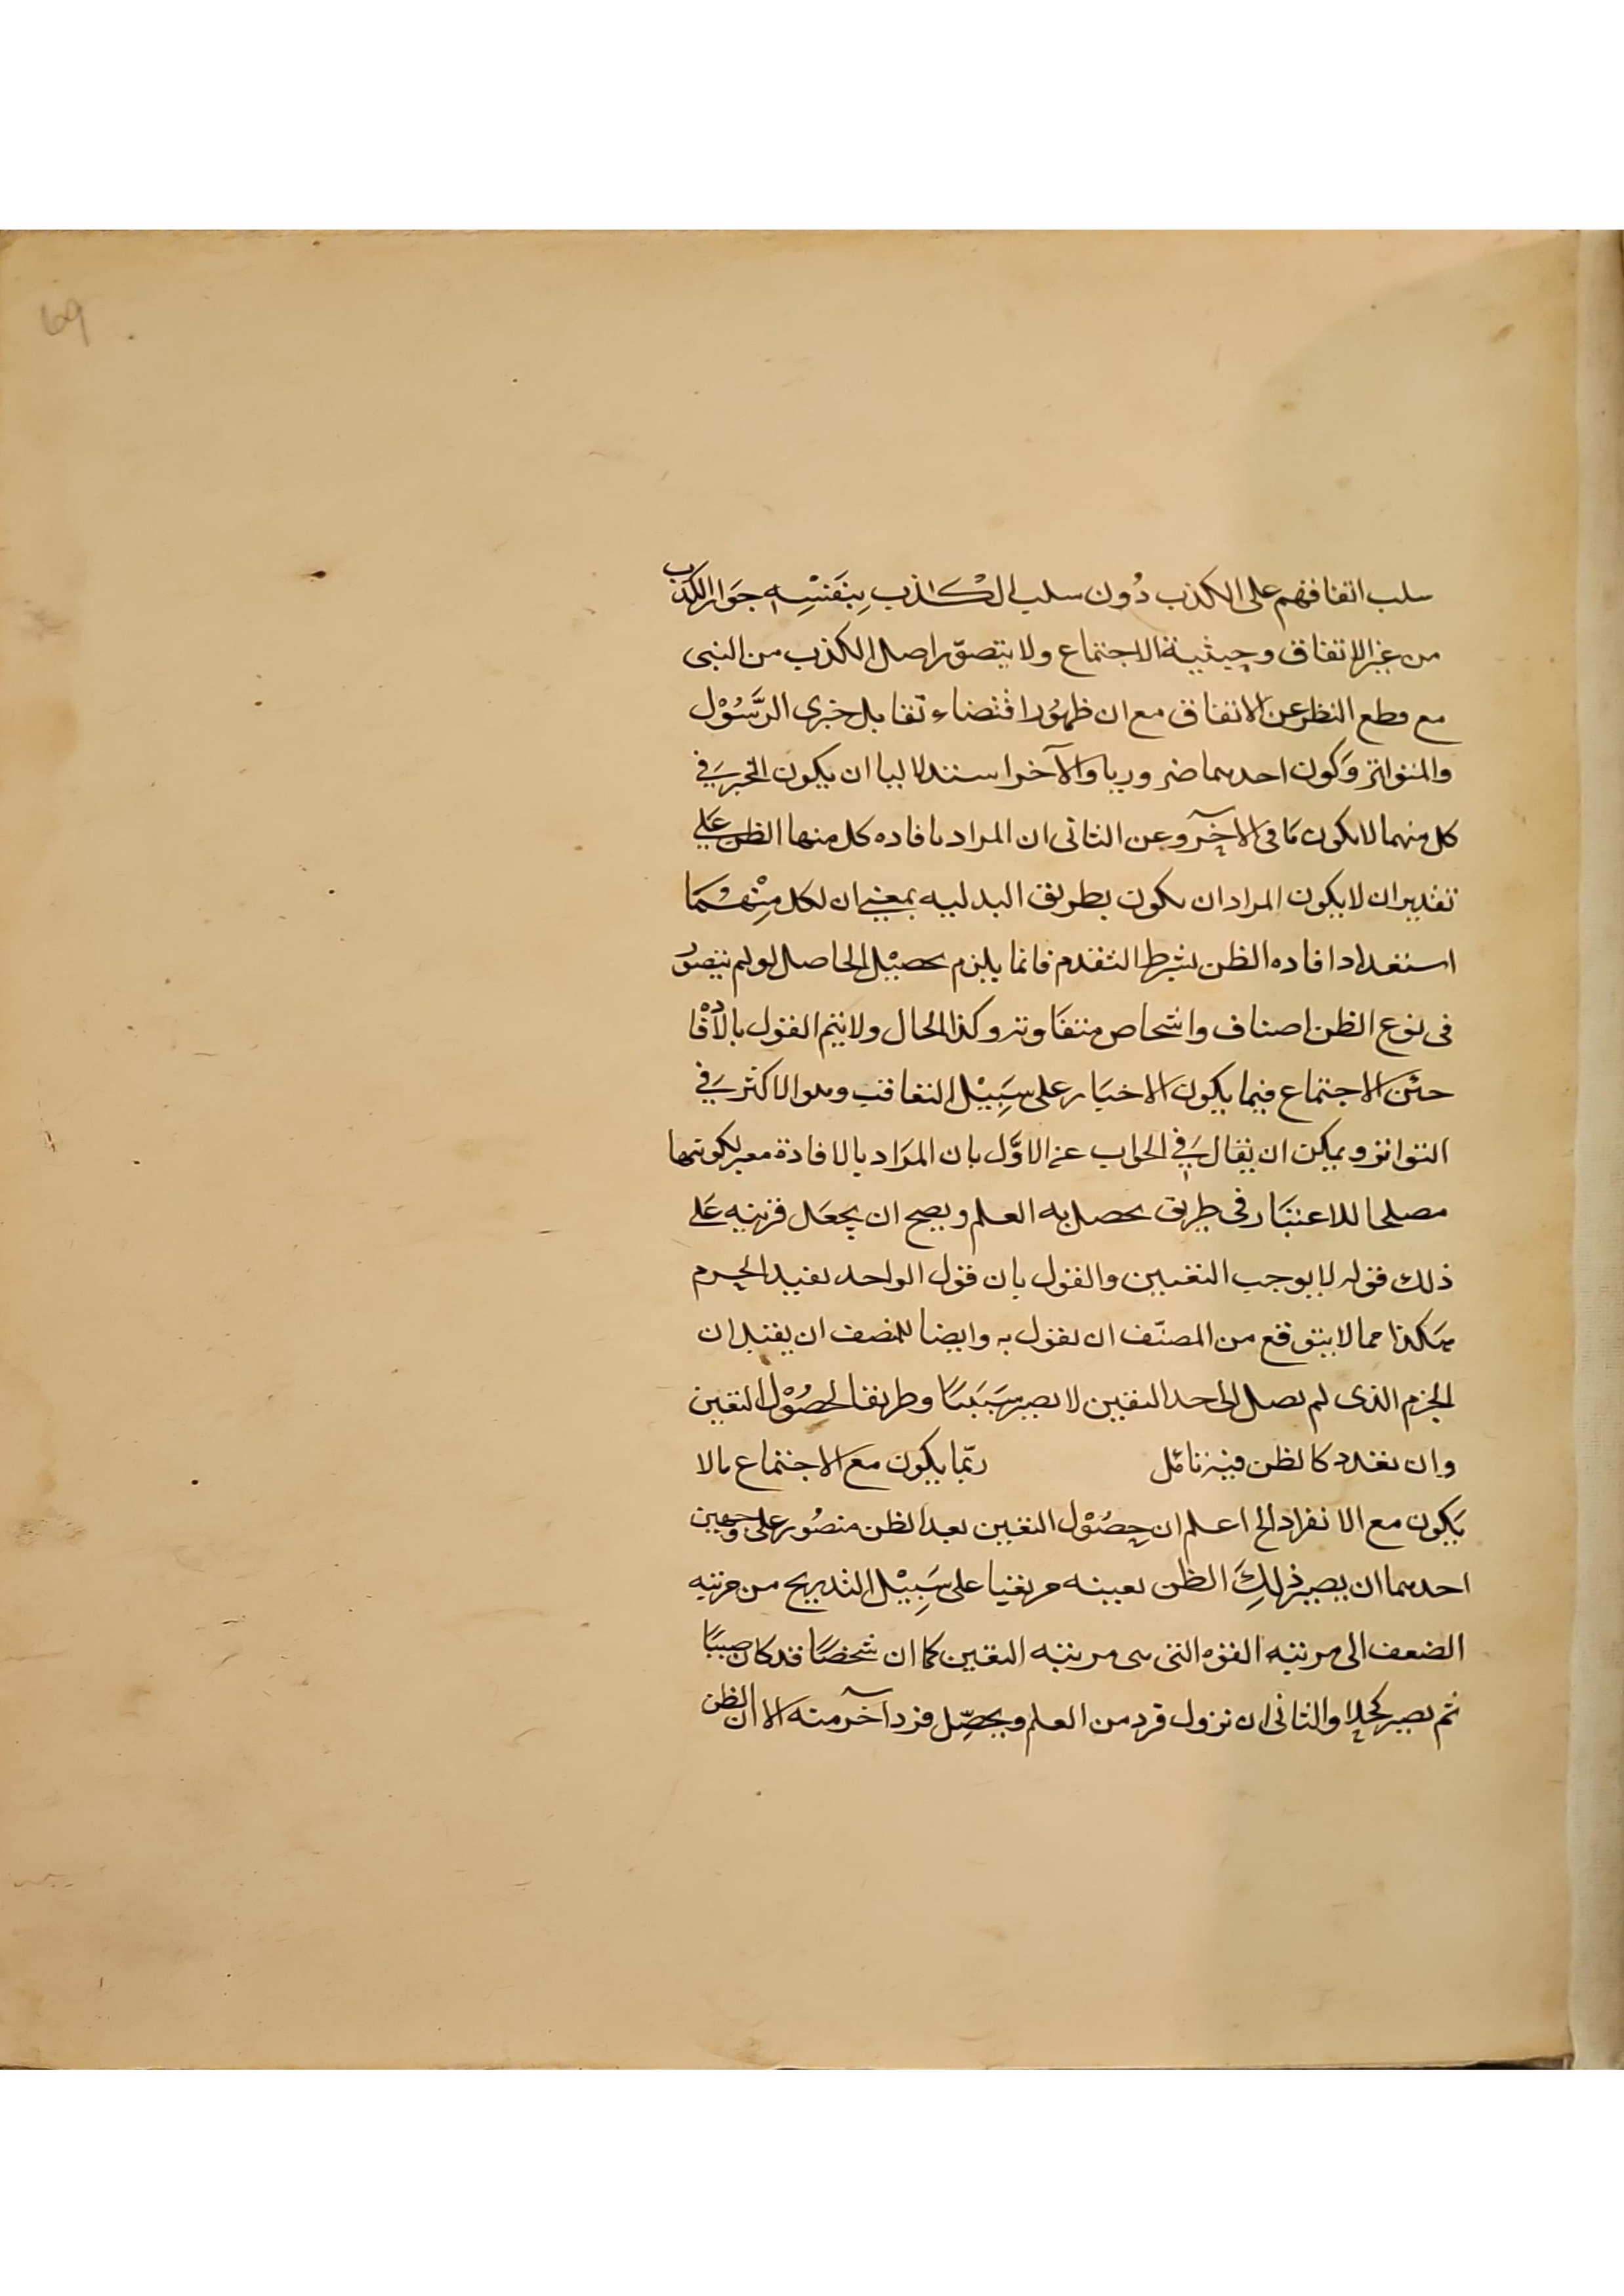 69
سلب اتفاقهم على الكذب دُون سلب الكاذب بِنَفسِه جوَاز الكذب
من غير الاتفاق وحيثية الاجتماع ولا يتصوّر اصل الكذب من النبى
مع قطع النظر عن الاتفاق مع ان ظهوُر اقتضاء تقابل خبرى الرَّسُوْل
والمتواتر وَكون احدهما ضروريا والآخر استدلاليا ان يكون الخبر في
كل منهما لا يكون مَا فى الآخر وعن الثانى ان المراد بافاده كل منها الظن عَلي
تقدير ان لا يكون المراد ان يكون بطريق البدليه بمعنى ان لكل مِنْهُمَا
استعداد افاده الظن بشرط التقدم فانما يلزم تحصيْل الحاصل لو لم يتصوُر
فى نوع الظن اصناف واشخاص متفَاوته وكذا الحال ولا يتم القول بالافَادْ
حين الاجتماع فيما يكون الاخبَار على سَبِيْل التعاقب وهو الاكثر في
التواتر ويمكن ان يقال في الجواب عن الاوَّل بان المرَاد بالافادة معبر لكونها
مصلحا للاعتبَار فى طريق يحصل به العلم ويصح ان يجعَل قرينه عَلے
ذلك قوله لا يوجب اليقين والقول بان قول الواحد يفيد الجزم
هَكذا مما لا يتوقع من المصنّف ان يقول به وايضا للمنصف ان يقبل ان
الجزم الذى لم يصل الى حد اليقين لا يصير سَبَبًا وطريقا لحصُوْل اليقين
وان تعدد كالظن فيه تامّل ربّما يكون مع الاجتماع مالا
يَكون مع الانفراد الخ اعلم ان حِصُوْل اليقين بعد الظن متصُور على وجهين
احدهما ان يصير ذلِكَ الظن بعينه مريقنيا على سَبِيْل التدريج من مرتبه
الضعف الى مرتبه القوه التى هى مرتبه اليقين كما ان شخصًا قد كان صبيًا
ثم يصير كحلا والثانى ان تزول فرد من العلم ويحصِّل فرد آخر منه الا ان الظن